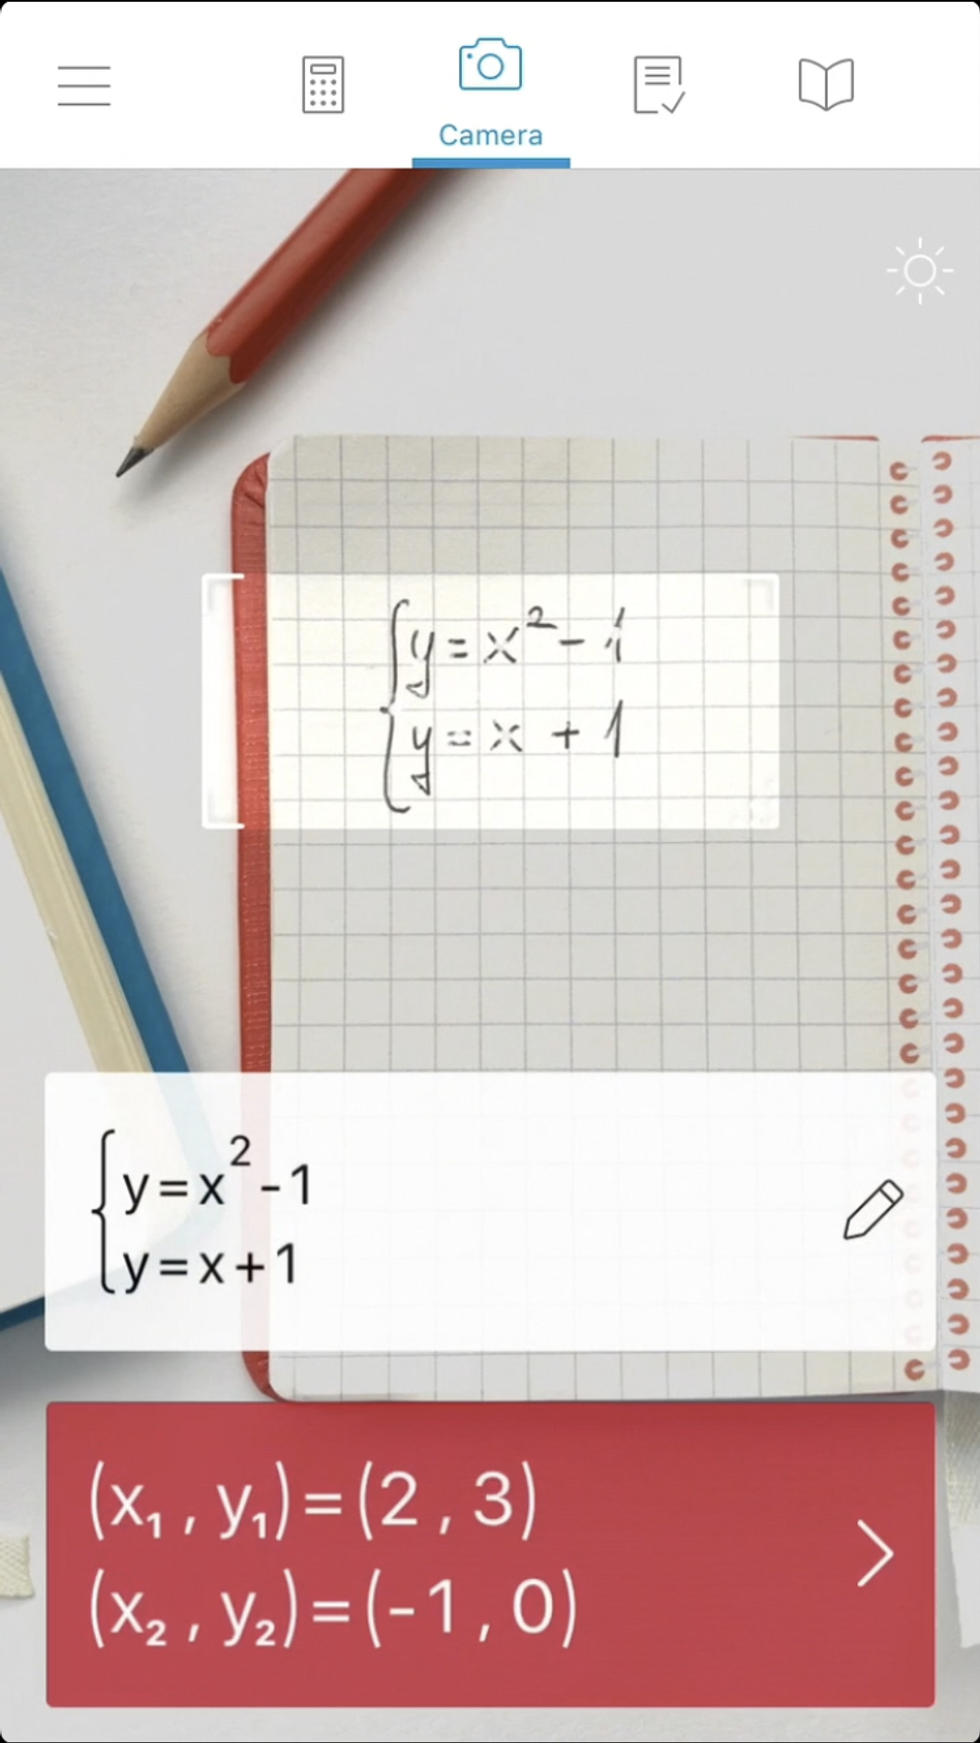 Camera
{y = x² - 1
y = x + 1
{y=x²-1
y=x+1
(x₁, y₁)=(2, 3)
(x₂, y₂)=(-1, 0)